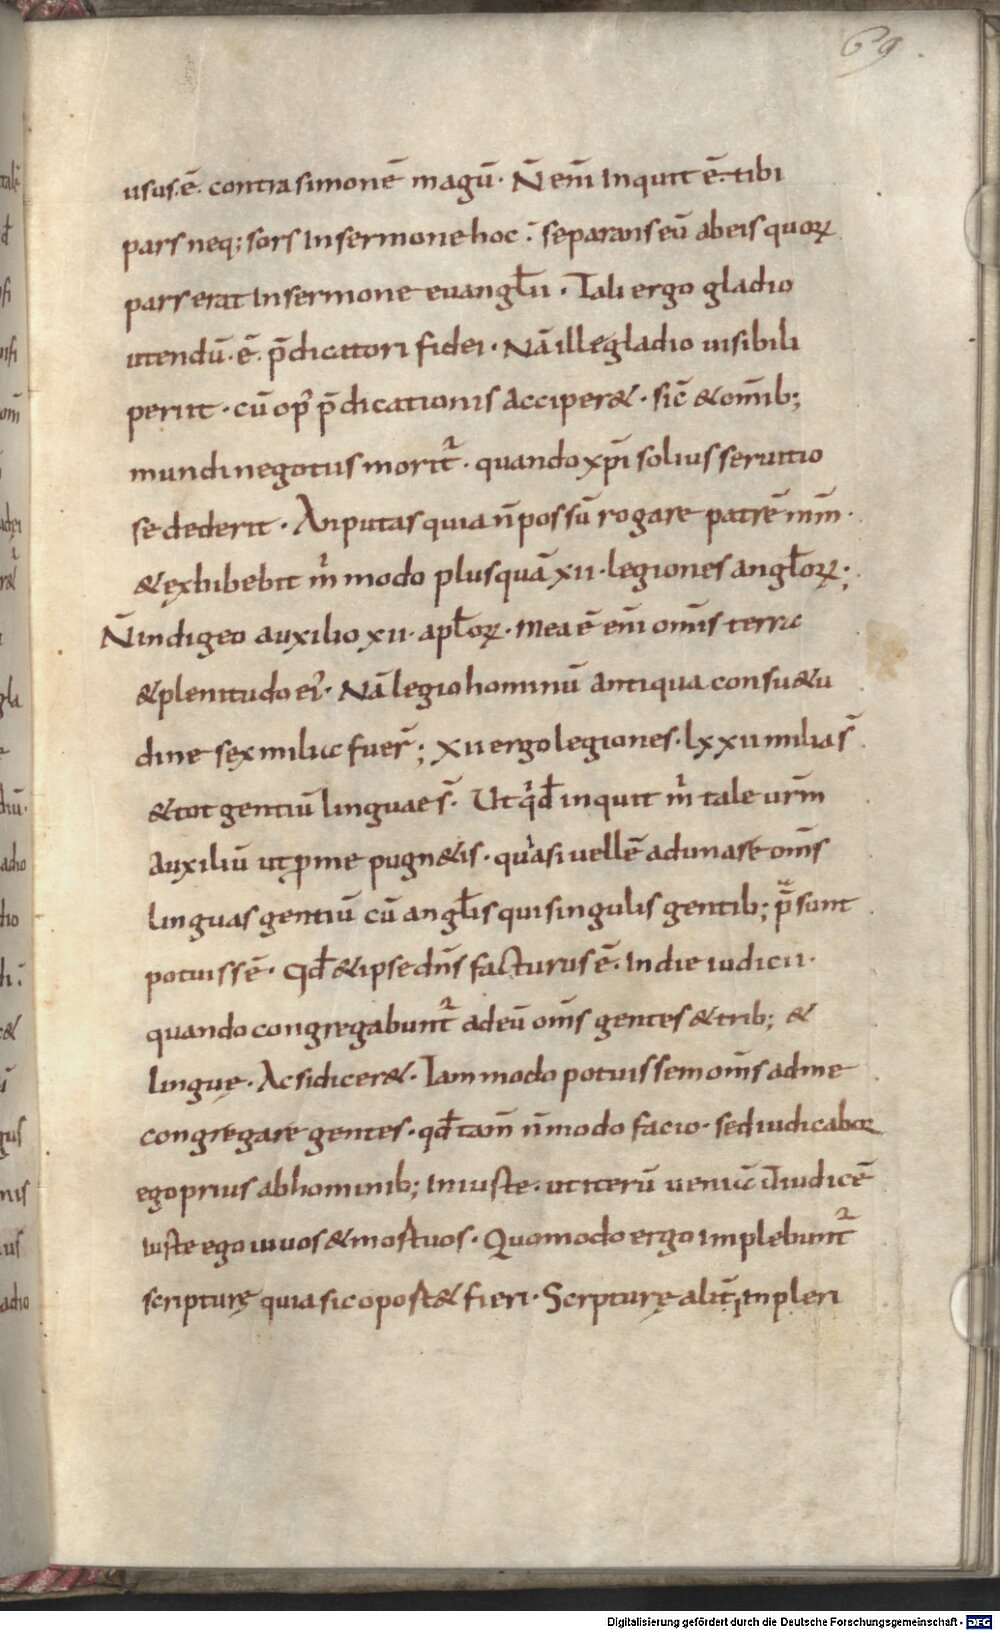 69.
usus.ē. contra simonē magū. N̄ eni̅ Inquit ē. tibi
pars neq; sors In sermone hoc; separans eū ab eis quoꝝ
pars erat In sermone euangl̄ii. Tali ergo gladio
utendū.ē. p̄dicatori fidei. Nā ille gladio uisibili
periit. cū op̄ p̄dicationis acciper&. sic̄ & om̄ib;
mundi negotiis morit᷑. quando xp̄i solius seruitio
se dederit. An putas quia n̄ possū rogare patrē mm̄.
& exhibebit m̄ modo plusquā xii. legiones angl̄oꝝ;
N̄ indigeo auxilio xii. apl̄oꝝ. Mea ē eni̅ om̄is terra
& plenitudo ei᾿. Nā legio hominū antiqua consu&u
dine sex milia fuer̄; Xii ergo legiones. lxxii milia s̄
& tot gentiū linguae s̄. Ut qͥd̄ inquit m̄ tale urm̄
auxiliū ut ꝓ me pugn&is. quasi uellē adunare om̄s
linguas gentiū cū angl̄is qui singulis gentib; p̄sunt
potuissē. Qd̄ & ipse dn̄s facturus ē. In die iudicii.
quando congregabunt᷑ ad eū om̄s gentes & trib; &
linguę. Ac si dicer&. Iam modo potuissem om̄s ad me
congregare gentes. qd̄ tam̄ n̄ modo facio. sed iudicabor
ego prius ab hominib; Iniuste. ut iterū ueniā iudicē
iuste ego uiuos & mortuos. Quomodo ergo Implebunt᷑
scripturę quia sic oport& fieri. Scrpturę alit̄ Inpleri
Digitalisierung gefördert durch die Deutsche Forschungsgemeinschaft - DFG